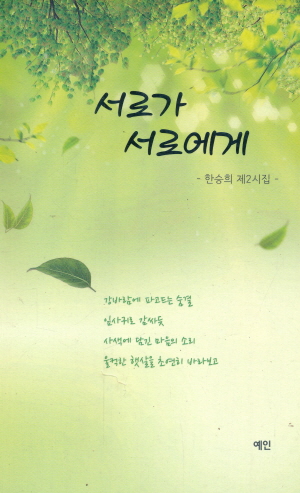 서로가
서로에게
- 한승희 제2시집 -
강바람에 파고드는 숨결
잎사귀로 감싸듯
사색에 담긴 마음의 소리
울컥한 햇살을 초연히 바라보고
예인